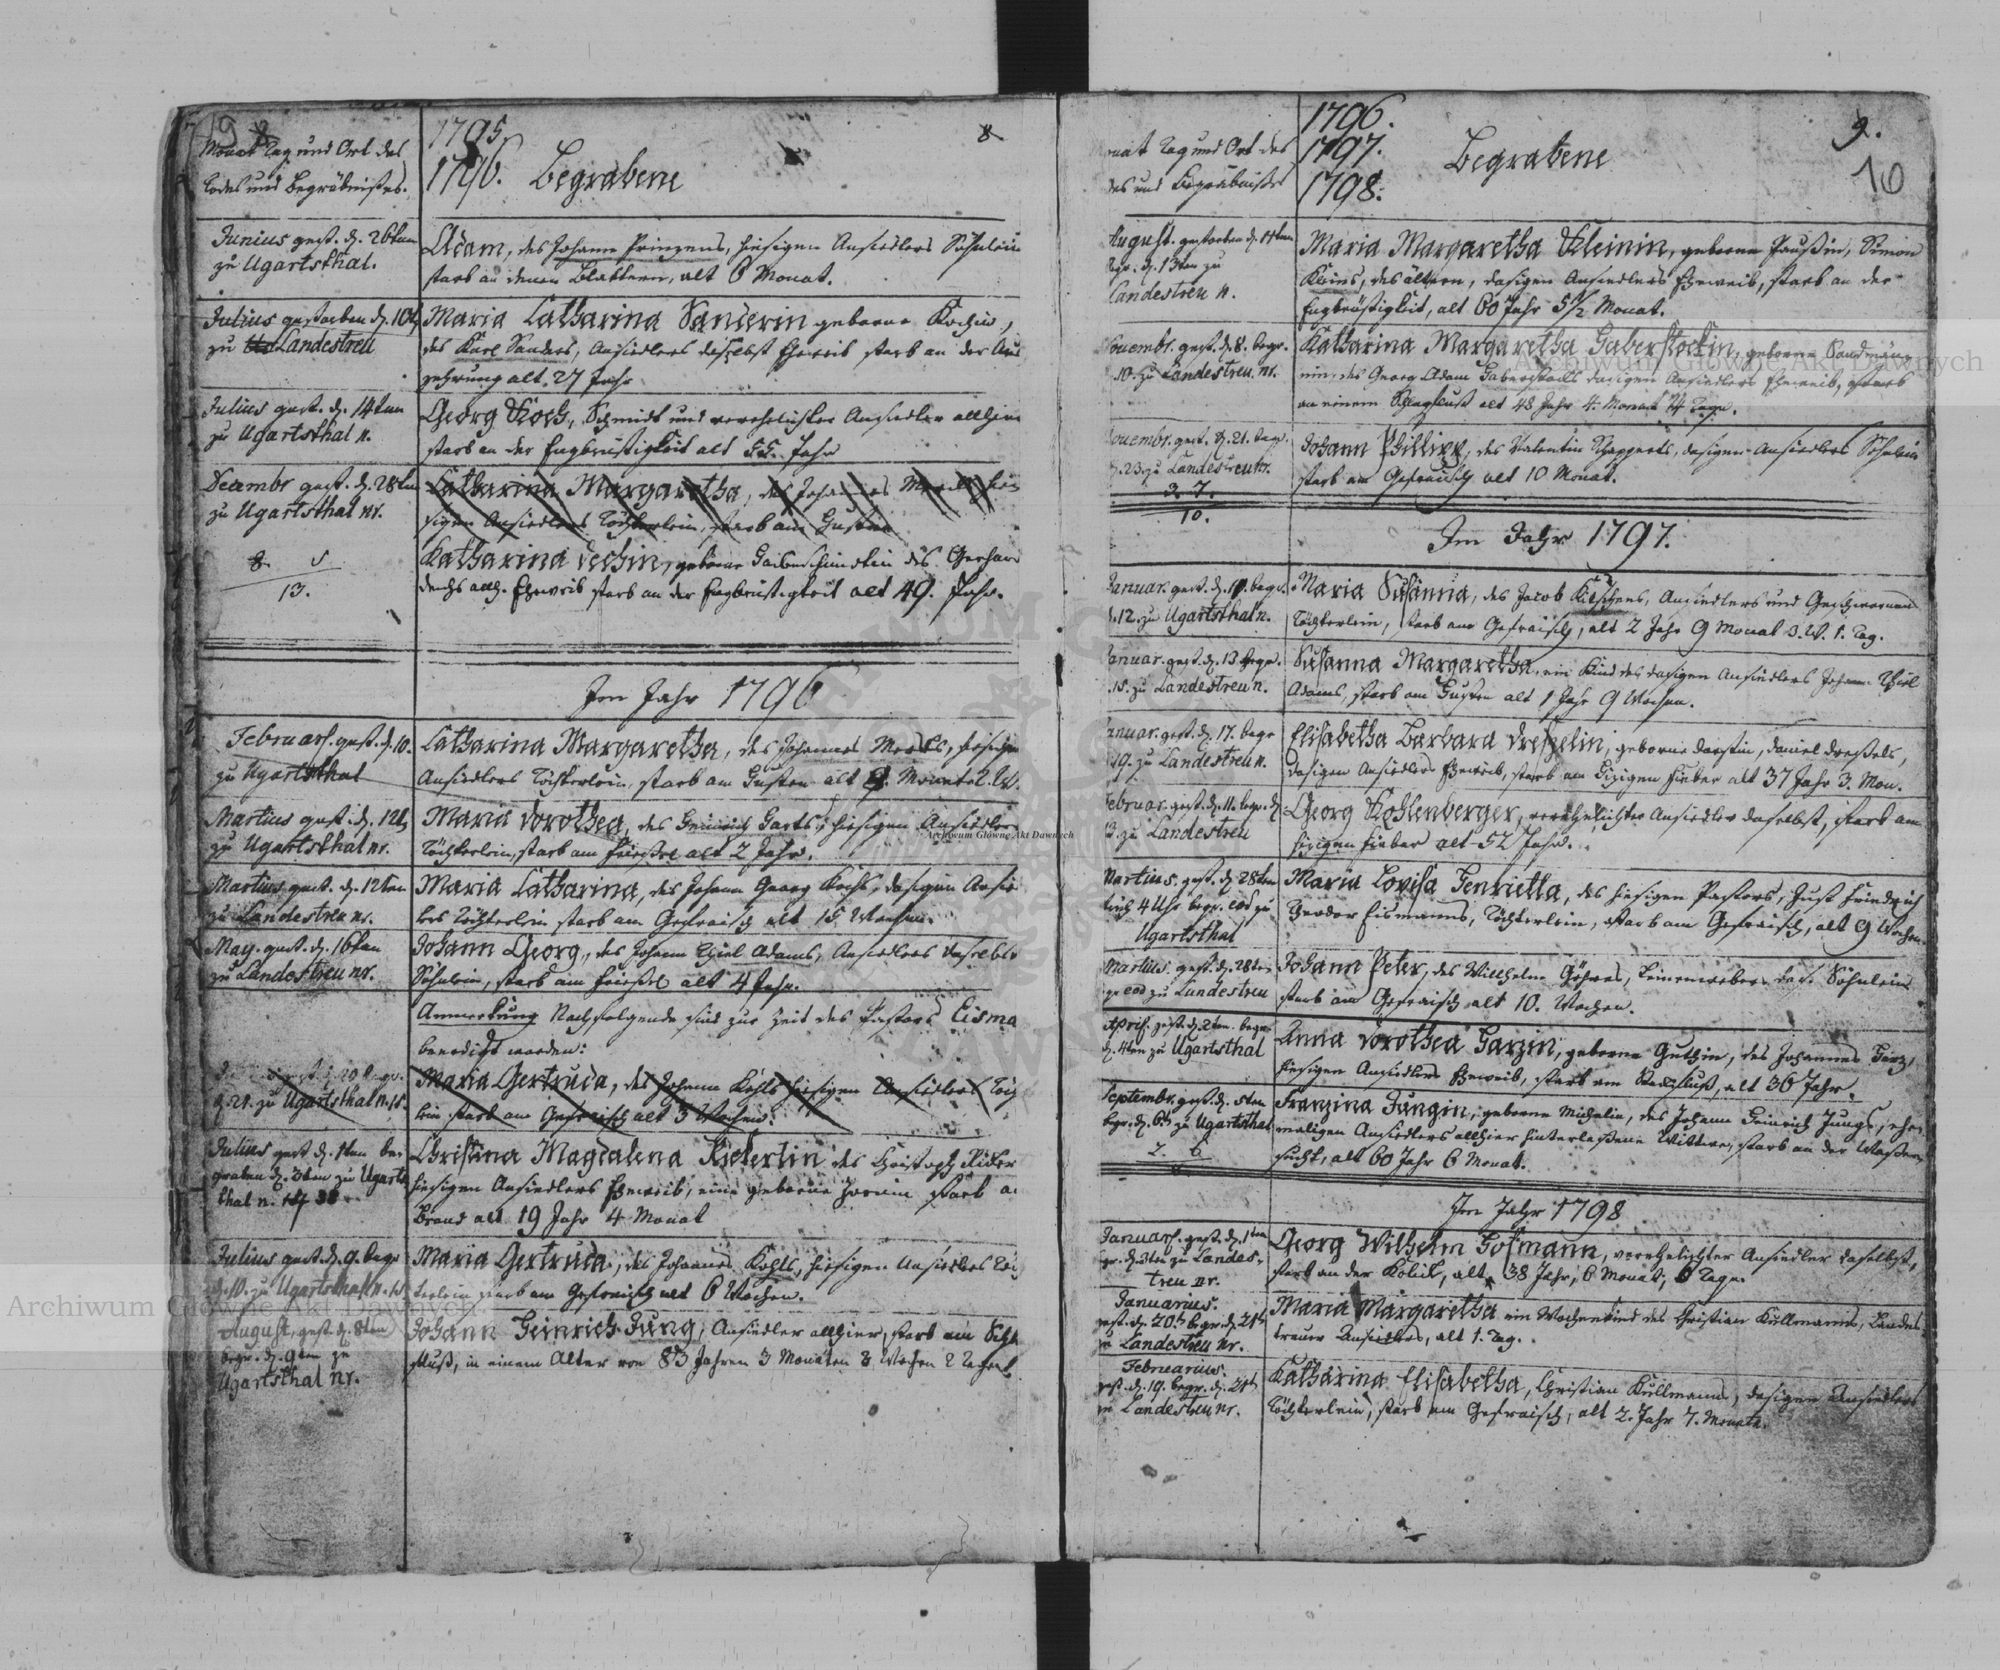 1795.
1796. Begrabene
8
Monat Tag und Ort des
Todes und Begräbnißes.
Junius gest. d. 26ten
zu Ugartsthal.
Adam, des Johann Prinzens, hiesigen Ansiedlers Söhnlein
starb an denen Blattern, alt 6 Monat.
Julius gestorben d. 10t
zu Landestreu
Maria Catharina Sanderin geborne Kochin,
des Karl Sanders, Ansiedlers daselbst Eheweib starb an der Aus
zehrung alt 27 Jahr
Julius gest. d. 14ten
zu Ugartsthal n.
Georg Koch, Schmidt und verehelichter Ansiedler allhier
starb an der Engbrüstigkeit alt 55. Jahr
Decembr gest. d. 28ten
zu Ugartsthal nr.
Catharina Margaretha, des Johannes hie
sigen Ansiedlers Töchterlein, starb am Husten
Katharina Dechin, geborne des Gerhar
Dechs allh. Eheweib starb an der Engbrüstigkeit alt 49. Jahr.
8. 5
13.
Im Jahr 1796
Februar. gest. d. 10.
zu Ugartsthal
Catharina Margaretha, des Johannes hiesigen
Ansiedlers Töchterlein, starb am Husten alt 9. Monate 2. W.
Martius gest. d. 12t
zu Ugartsthal nr.
Maria Dorothea, des Heinrich Harts, hiesigen Ansiedlers
Töchterlein, starb am alt 2 Jahr.
Martius gest. d. 12ten
zu Landestreu nr.
Maria Catharina, des Johann Georg Kochs, dasigen Ansied
lers Töchterlein starb am Gefraisch alt 15 Wochen.
May. gest. d. 16ten
zu Landestreu nr.
Johann Georg, des Johann Thiel Adams, Ansiedlers daselbst
Söhnlein, starb am alt 4 Jahr.
Anmerkung Nachfolgende sind zur Zeit des Pastors Eisma
beerdigt worden:
d. 21. zu Ugartsthal n. 15.
Maria Gertruda, des Johann Kohls hiesigen Ansiedlers Töch
lein starb am Gefraisch alt 5 Wochen.
Julius gest d. 1ten be
graben d. 3ten zu Ugarts
thal n.
Christina Magdalena Rickerlin des Christoph Ricker
hiesigen Ansiedlers Eheweib, eine geborne starb a
Brand alt 19 Jahr 4 Monat
Julius gest. d. 9. begr
d. 10. zu Ugartsthal n. 15
Maria Gertruda, des Johannes Kohls, hiesigen Ansiedlers Töch
terlein starb am Gefraisch alt 6 Wochen.
August, gest. d. 8ten
begr. d. 9ten zu
Ugartsthal nr.
Johann Heinrich Jung, Ansiedler allhier, starb am Schla
gfluß, in einem Alter von 83 Jahren 3 Monaten 2 Wochen 2 Tagen
1796.
1797. Begrabene
1798.
9.
10
onat Tag und Ort des
des und Begräbnißes
August. gestorben d. 11ten
begr. d. 13ten zu
Landestreu n.
Maria Margaretha Kleinin, geborne Paußin, Simon
Kleins, des ältern, dasigen Ansiedlers Eheweib, starb an der
Engbrüstigkeit, alt 60 Jahr 5 1/2 Monat.
Novembr. gest. d. 8. begr.
10. zu Landestreu. nr.
Katharina Margaretha Haberstockin, geborne
nin, des Georg Adam Haberstocks dasigen Ansiedlers Eheweib, starb
an einem Schlagfluß alt 48 Jahr 4. Monat 14 Tage.
Novembr. gest. d. 21. begr
d. 23. zu Landestreu nr.
Johann Phillipp, des Valentin Schapperts, dasigen Ansiedlers Söhnlein
starb am Gefraisch alt 10 Monat.
3. 7.
10.
Im Jahr 1797.
Januar. gest. d. 11. begr.
d. 12. zu Ugartsthal n.
Maria Susanna, des Jacob Kirschens, Ansiedlers und Geschwornen
Töchterlein, starb am Gefraisch, alt 2 Jahr 9 Monat 3. W. 1. Tag.
Januar. gest. d. 13 begr.
15. zu Landestreu n.
Susanna Margaretha, ein Kind des dasigen Ansiedlers Johann Thiel
Adams, starb am Husten alt 1 Jahr 9 Wochen.
Januar. gest. d. 17. begr
19. zu Landestreu n.
Elisabetha Barbara Dreßelin, geborne Darstin, Daniel Dreßels,
dasigen Ansiedlers Eheweib, starb am hizigen Fieber alt 37 Jahr 3. Mon.
Februar. gest. d. 11. begr. d.
13. zu Landestreu
Georg Kohlenberger, verehelichter Ansiedler daselbst, starb am
hizigen Fieber alt 52 Jahr.
Martius. gest. d. 28ten
früh 4 Uhr begr. eod zu
Ugartsthal
Maria Lovisa Henrietta, des hiesigen Pastors, Just Friedrich
Theodor Eismanns, Töchterlein, starb am Gefraisch, alt 9 Wochen.
Martius. gest. d. 28ten
gr eod zu Landestreu
Johann Peter, des Willhelm Göhres, Leinenweber das. Söhnlein
starb am Gefraisch alt 10. Wochen.
April. gest. d. 2ten. begr.
d. 4ten zu Ugartsthal
Anna Dorothea Harzin, geborne Guthin, des Johannes Harz,
hiesigen Ansiedlers Eheweib, starb am Steckfluß, alt 36 Jahr.
Septembr. gest. d. 5ten
begr. d. 6t zu Ugartsthal
2. 6
Franzina Jungin, geborne Michelin, des Johann Heinrich Jungs, ehe
maligen Ansiedlers allhier hinterlaßene Wittwe, starb an der Waßer
sucht, alt 60 Jahr 6 Monat.
Im Jahr 1798
Januar. gest. d. 1ten
gr. d. 3ten zu Landes-
treu nr.
Georg Wilhelm Hofmann, verehelichter Ansiedler daselbst,
starb an der Kolick, alt 38 Jahr, 6 Monat, 6 Tage.
Januarius.
gest. d. 20t begr. d. 21t
zu Landestreu nr.
Maria Margaretha ein Wochenkind des Christian Kullmanns, Landes
treuer Ansiedlers, alt 1. Tag.
Februarius.
gest. d. 19. begr. d. 21t
zu Landestreu nr.
Katharina Elisabetha, Christian Kullmanns, dasigen Ansiedlers
Töchterlein, starb am Gefraisch, alt 2. Jahr 7. Monate.
Archiwum Główne Akt Dawnych
Archiwum Główne Akt Dawnych
Archiwum Główne Akt Dawnych